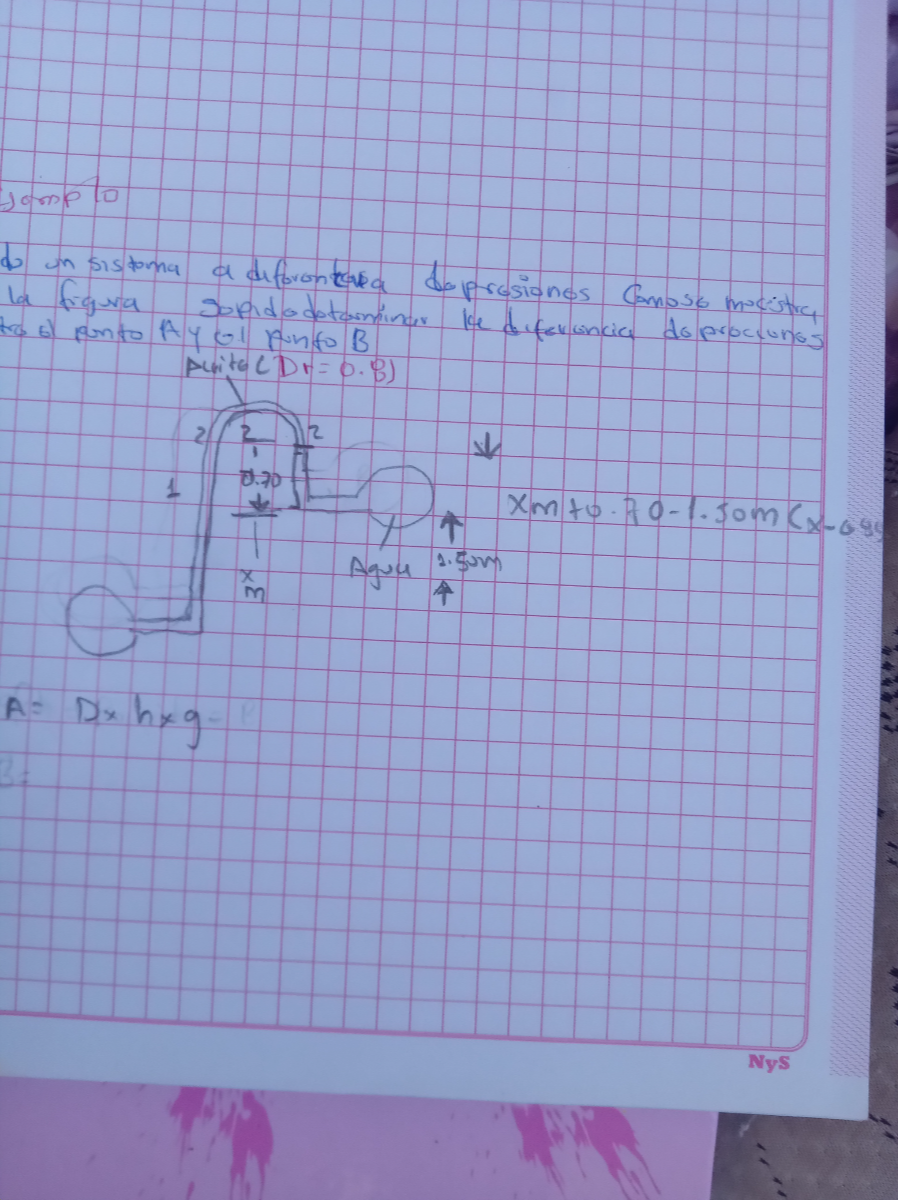 Jemplo
do un sistoma a diforontoea dopresionos Comose moestra
la figura sopidodotorminar le diferencia dopreciones
tro el ponto A y el ponto B
Aceite (Dr=0.8)
2 2 2
1 0.70
xm+0.70-1.50m (x-0
Agua 1.50m
x
m
A= Dxhxg=
B=
NyS